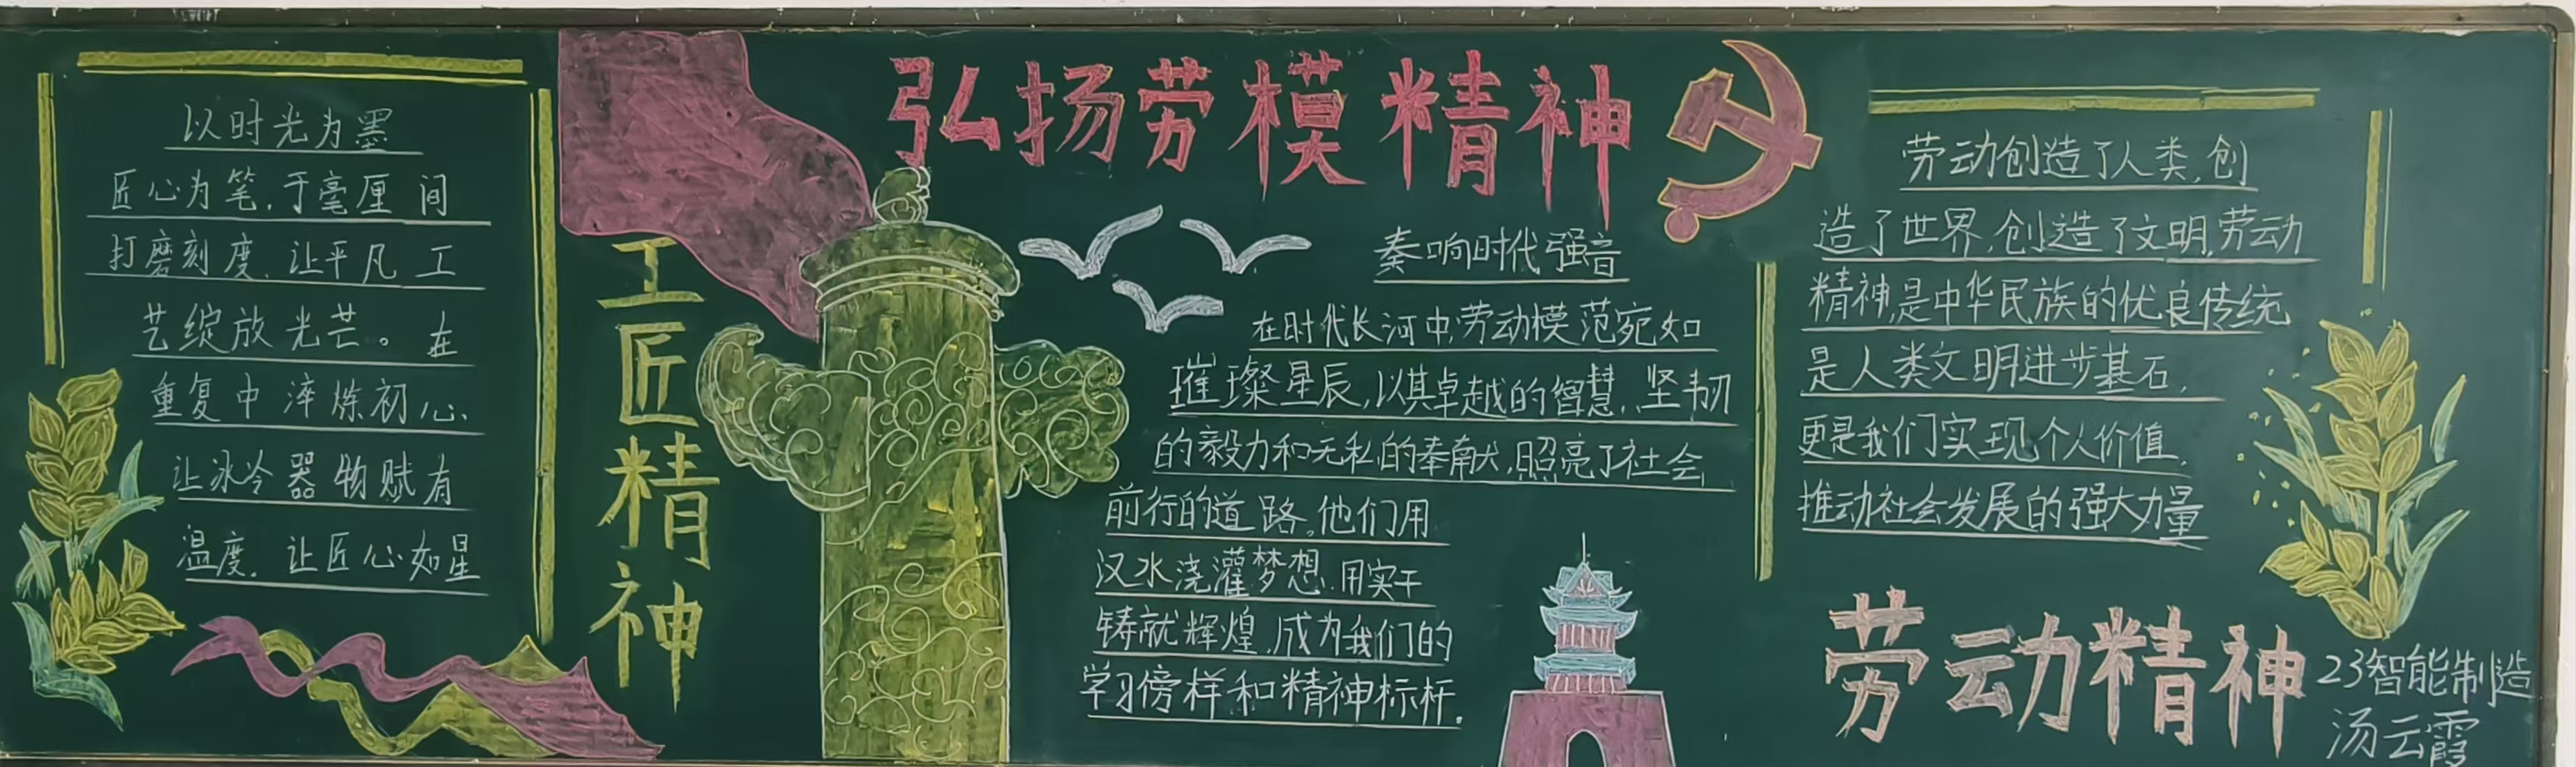 弘扬劳模精神
以时光为墨
匠心为笔,于毫厘间
打磨刻度,让平凡工
艺绽放光芒。在
重复中淬炼初心、
让冰冷器物赋有
温度。让匠心如星
工匠精神
奏响时代强音
在时代长河中,劳动模范宛如
璀璨星辰,以其卓越的智慧、坚韧
的毅力和无私的奉献,照亮了社会
前行的道路。他们用
汉水浇灌梦想.用实干
铸就辉煌,成为我们的
学习傍样和精神标杆。
劳动创造了人类,创
造了世界,创造了文明,劳动
精神是中华民族的优良传统
是人类文明进步基石,
更是我们实现个人价值,
推动社会发展的强大力量
劳动精神
23智能制造
汤云霞